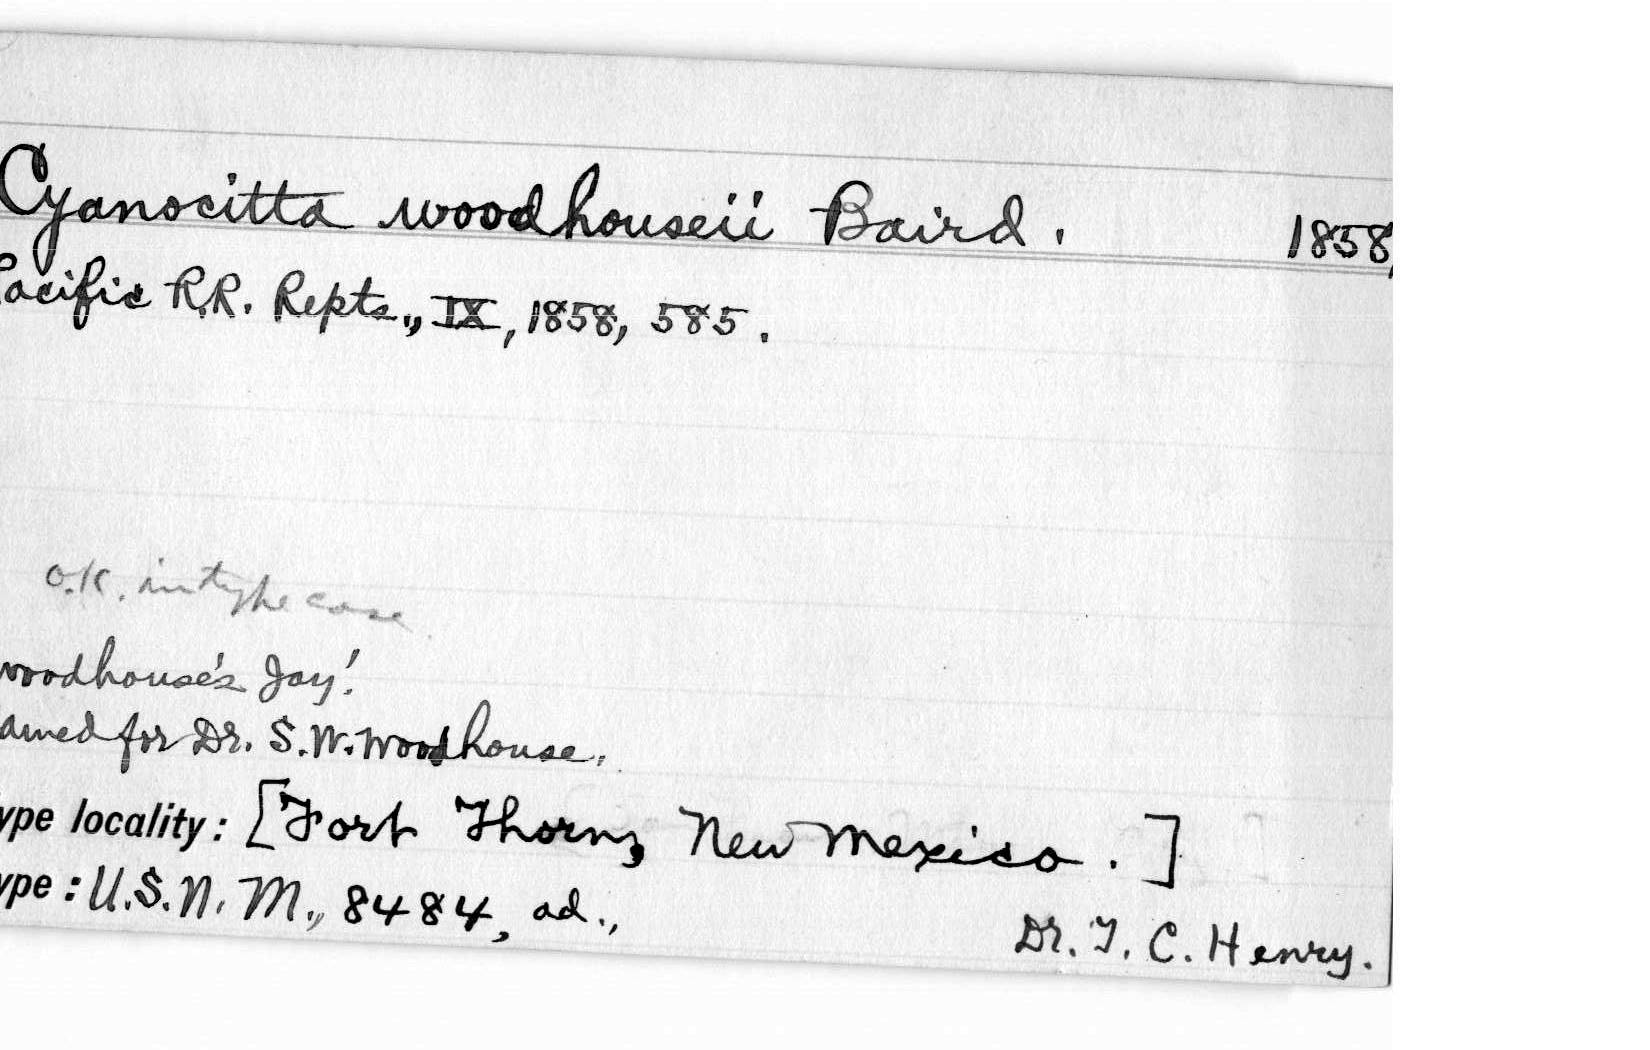 Cyanocitta woodhouseii Baird. 1858,
Pacific R.R. Repts., IX, 1858, 585.
O.K. in type case
Woodhouse's Jay!
amed for Dr. S. W. Woodhouse.
ype locality: [Fort Thorn, New Mexico.]
ype: U.S.N.M., 8484, ad.,
Dr. T. C. Henry.